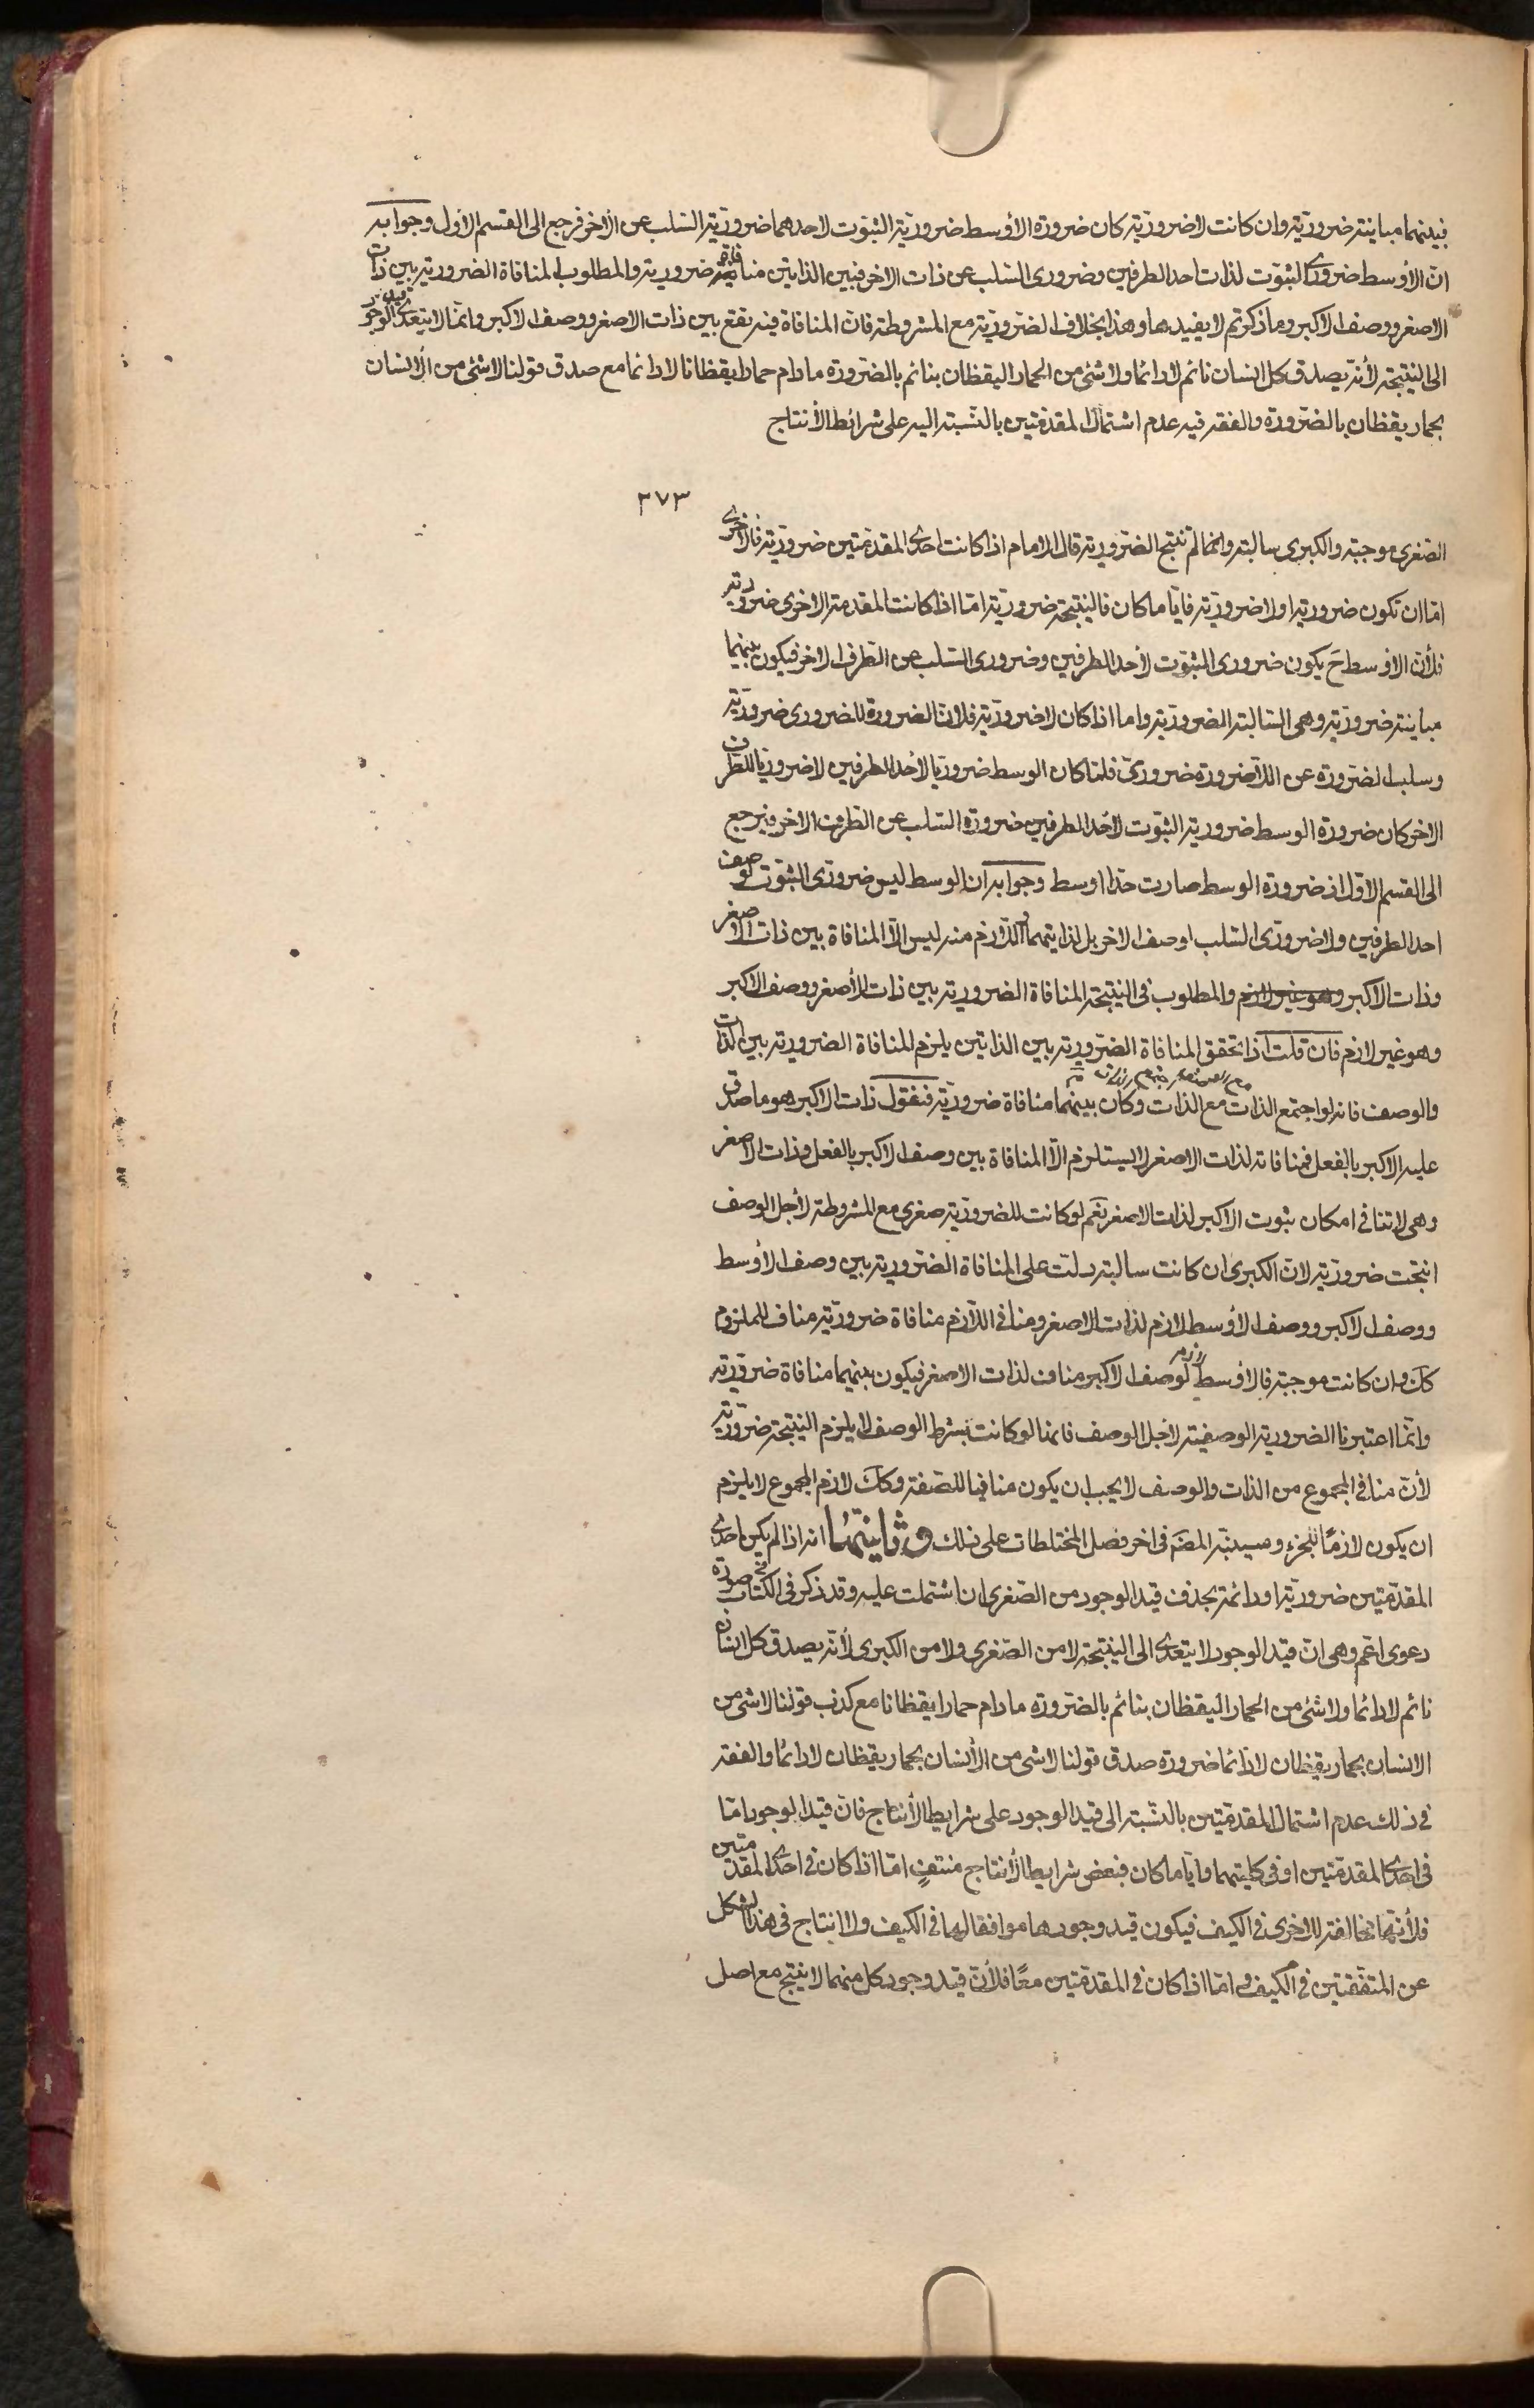 فبينهما مباينة ضرورية وان كانت لاضرورية كان ضرورة الأوسط ضرورية الثبوت لاحدهما ضرورية السلب عن الأخر فرجع الى القسم الأول وجوابه
ان الأوسط ضرورى الثبوت لذات احد الطرفين وضرورى السلب عن ذات الاخر فبين الذاتين منافاة ضرورية والمطلوب المنافاة الضرورية بين ذات
الاصغر ووصف الاكبر وما ذكرتم لا يفيدها وهذا بخلاف الضرورية مع المشروطة فان المنافاة فيه تقع بين ذات الاصغر ووصف الاكبر وانما لا يتعدى قيد الوجود
الى النتيجة لأنه يصدق كل انسان نائم لادائما ولا شئ من الحمار اليقظان بنائم بالضرورة مادام حمارا يقظانا لادائما مع صدق قولنا لاشئ من الانسان
بحمار يقظان بالضرورة والفقه فيه عدم اشتمال المقدمتين بالنسبة اليه على شرائط الأنتاج
٣٧٣
الصغرى موجبة والكبرى سالبة وانها لم تنتج الضرورية قال الامام اذا كانت احدى المقدمتين ضرورية فالاخرى
اما ان تكون ضرورية او لاضرورية فايا ما كان فالنتيجة ضرورية اما اذا كانت المقدمة الاخرى ضرورية
فلأن الاوسط ح يكون ضرورى الثبوت لأحد الطرفين وضرورى السلب عن الطرف الاخر فيكون بينهما
مباينة ضرورية وهى السالبة الضرورية واما اذا كان لاضرورية فلان الضرورة للضرورى ضرورية
وسلب الضرورة عن اللاضرورة ضرورى فلما كان الوسط ضروريا لأحد الطرفين لاضروريا للطرف
الاخر كان ضرورة الوسط ضرورية الثبوت لأحد الطرفين ضرورة السلب عن الطرف الاخر فيرجع
الى القسم الاول اذ ضرورة الوسط صارت حدا اوسط وجوابه ان الوسط ليس ضرورى الثبوت لوصف
احد الطرفين ولا ضرورى السلب اوصف الاخر بل لذاتيهما فاللازم منه ليس الا المنافاة بين ذات الاصغر
وذات الاكبر وهو غير لازم والمطلوب فى النتيجة المنافاة الضرورية بين ذات الأصغر ووصف الاكبر
وهو غير لازم فان قلت اذا تحقق المنافاة الضرورية بين الذاتين يلزم المنافاة الضرورية بين الذات
والوصف فانه لو اجتمع الذات مع الذات وكان بينهما منافاة ضرورية فنقول ذات الاكبر هو ما صدق
عليه الاكبر بالفعل فمنافاته لذات الاصغر لا يستلزم الا المنافاة بين وصف الاكبر بالفعل وذات الاصغر
وهى لاتنافى امكان ثبوت الاكبر لذات الاصغر نعم لو كانت للضرورية صغرى مع المشروطة لأجل الوصف
انتجت ضرورية لان الكبرى ان كانت سالبة دلت على المنافاة الضرورية بين وصف الأوسط
ووصف الاكبر ووصف الأوسط لازم لذات الاصغر ومنافى اللازم منافاة ضرورية مناف للملزوم
كك وان كانت موجبة فالاوسط لازم لوصف الاكبر مناف لذات الاصغر فيكون بينهما منافاة ضرورية
وانما اعتبرنا الضرورية الوصفية لاجل الوصف فانها لو كانت بشرط الوصف لا يلزم النتيجة ضرورية
لأن منافى المجموع من الذات والوصف لا يجب ان يكون منافيا للصفة وكك لازم المجموع لا يلزم
ان يكون لازمًا للجزء وسينبه المض فى اخر فصل المختلطات على ذلك وثانيتها انه اذا لم يكن احدى
المقدمتين ضرورية او دائمة بحذف قيد الوجود من الصغرى ان اشتملت عليه وقد ذكر فى الكتاب صورة
دعوى اعم وهى ان قيد الوجود لا يتعدى الى النتيجة لا من الصغرى ولا من الكبرى لأنه يصدق كل انسان
نائم لادائما ولا شئ من الحمار اليقظان بنائم بالضرورة مادام حمارا يقظانا مع كذب قولنا لاشئ من
الانسان بحمار يقظان لادائما ضرورة صدق قولنا لاشئ من الأنسان بحمار يقظان لادائما والفقه
فى ذلك عدم اشتمال المقدمتين بالنسبة الى قيد الوجود على شرايط الأنتاج فان قيد الوجود اما
فى احدى المقدمتين او فى كليتهما وايا ما كان فبعض شرايط الأنتاج منتفٍ اما اذا كان فى احدى المقدمتين
فلأنها مخالفة للاخرى فى الكيف فيكون قيد وجودها موافقا لها فى الكيف ولا انتاج فى هذا الشكل
عن المتفقتين فى الكيف واما اذا كان فى المقدمتين معًا فلأن قيد وجود كل منهما لا ينتج مع اصل